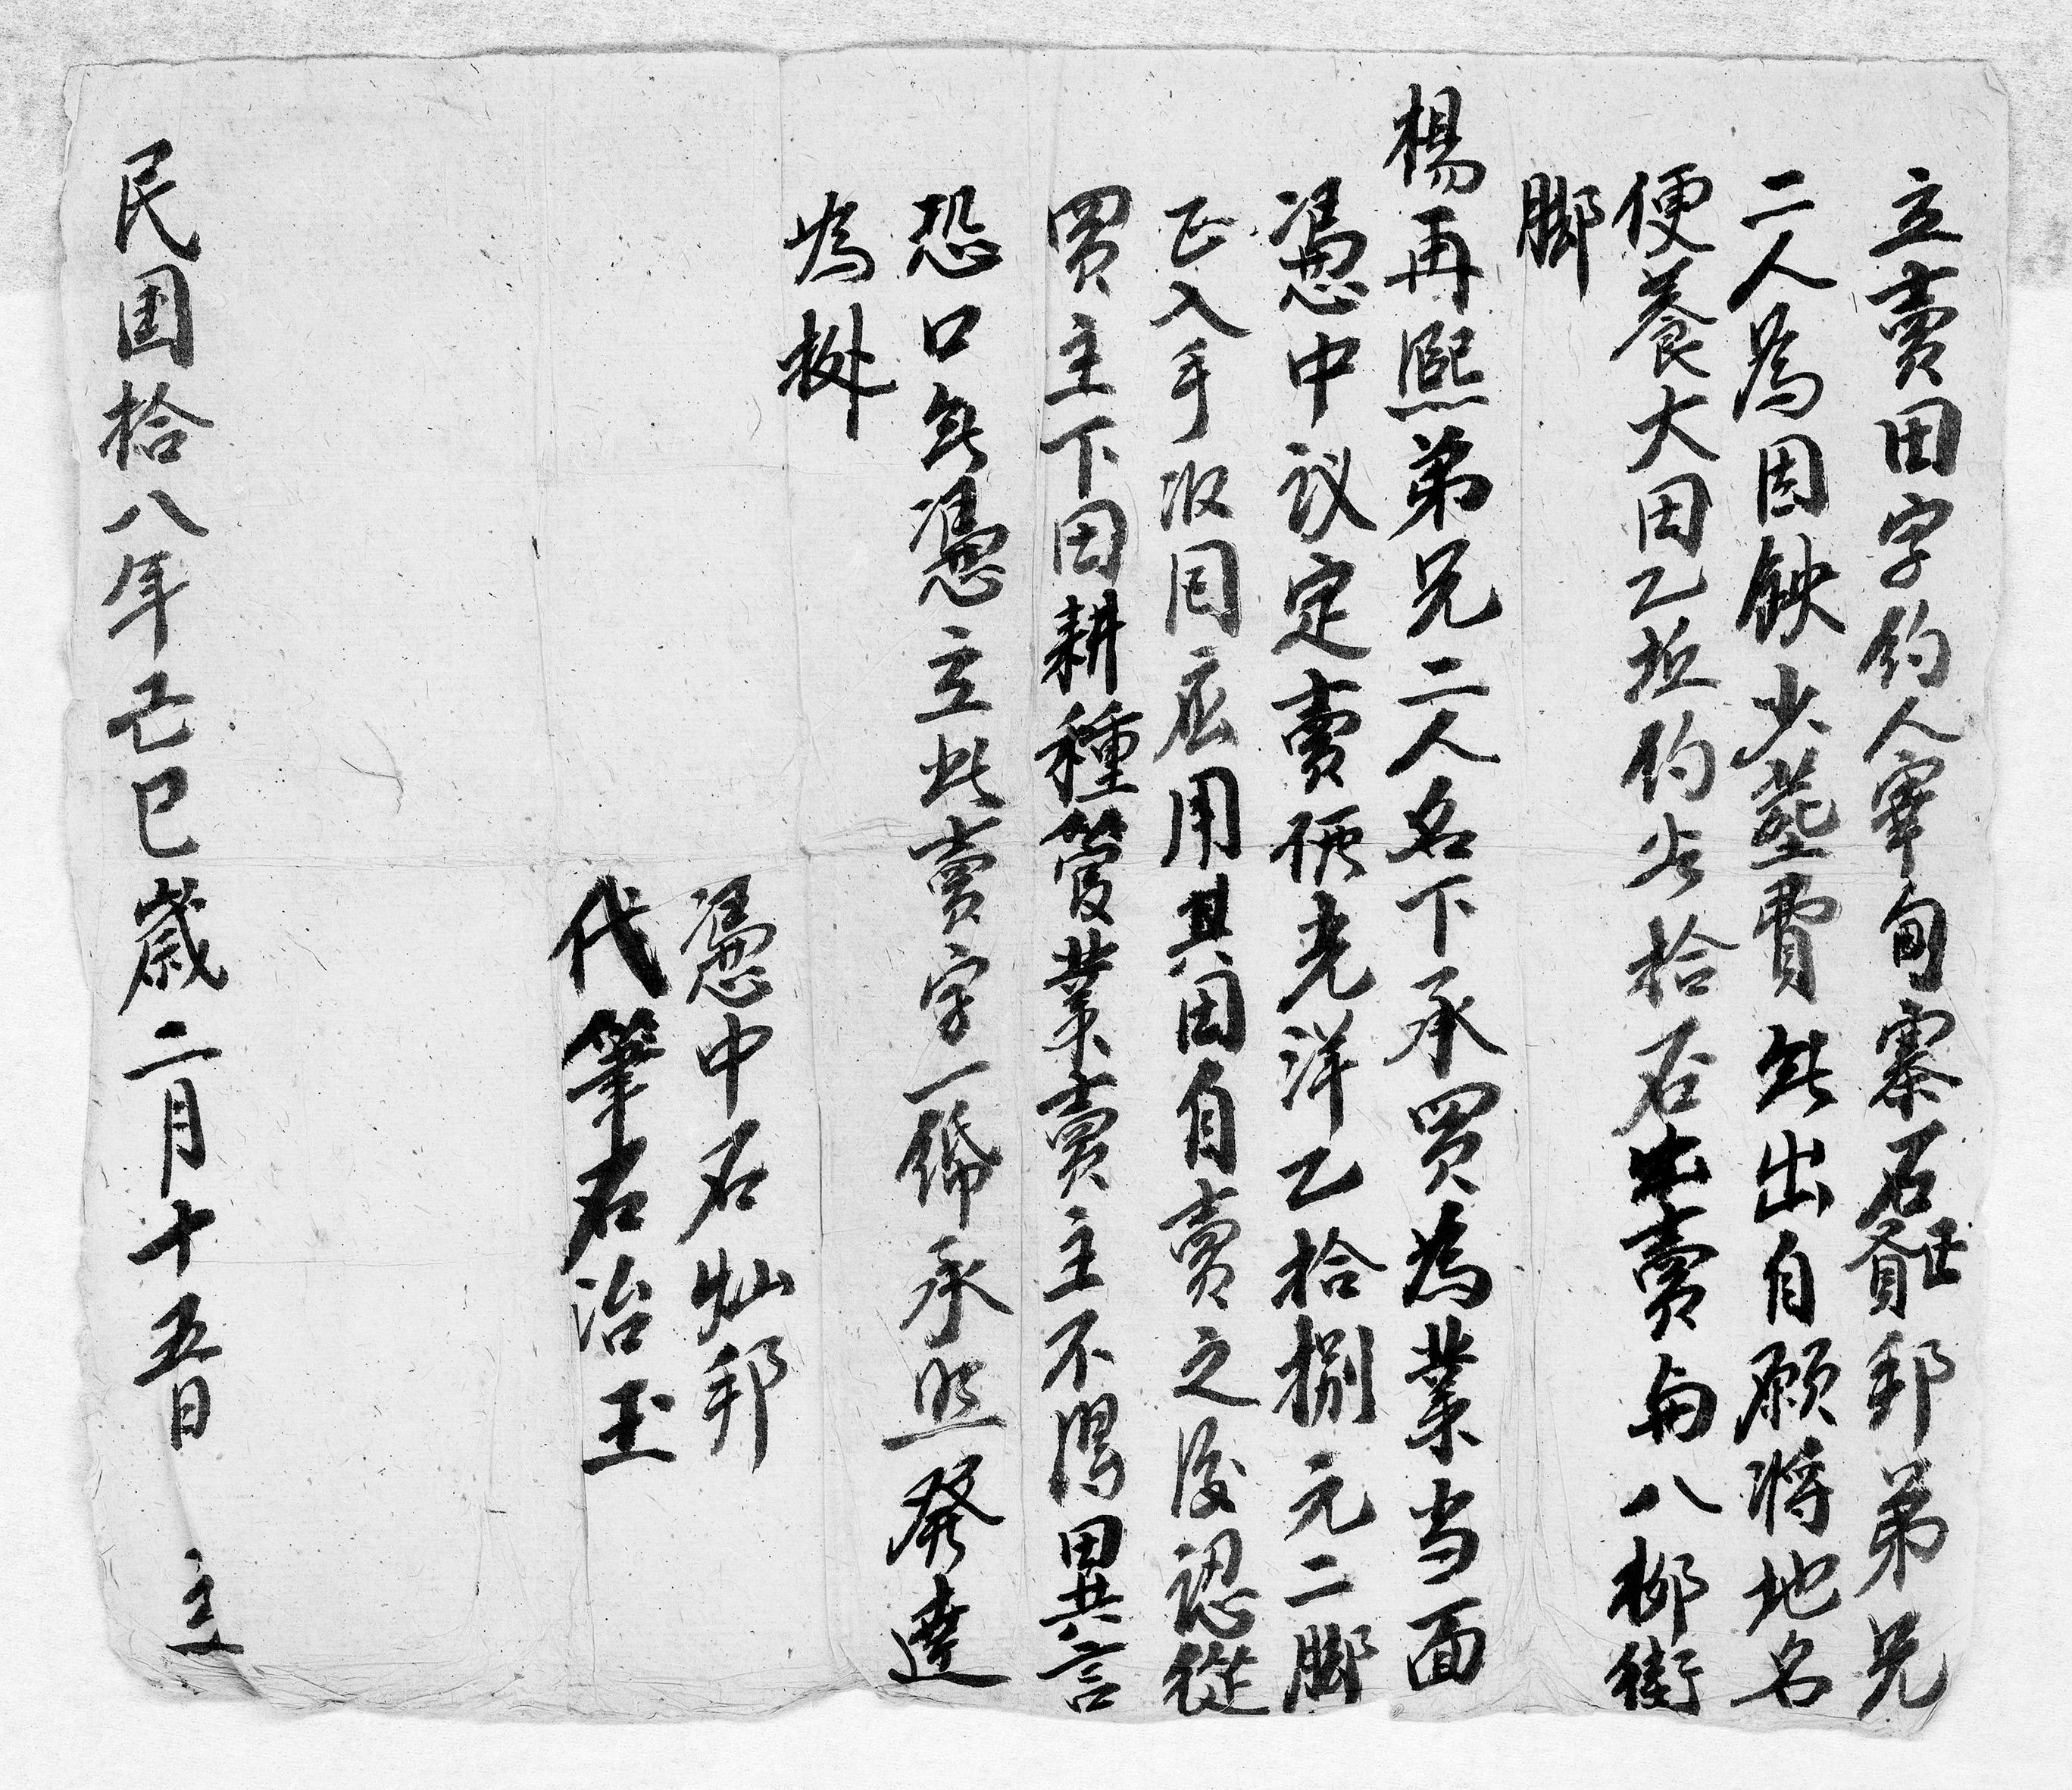 立賣田字約人寧旬寨石賢邦弟兄
二人為因缺少塋費無出自願將地名
便養大田乙坵約谷拾石出賣與八柳街
脚
楊再熙弟兄二人名下承買為業当面
憑中议定賣價光洋乙拾捌元二脚
正入手收回应用其田自賣之後認從
買主下田耕種管業賣主不得異言
恐口無憑立此賣字一紙承照發達
為挶
憑中石灿邦
代筆石治玉
民国拾八年己巳歲二月十五日 立